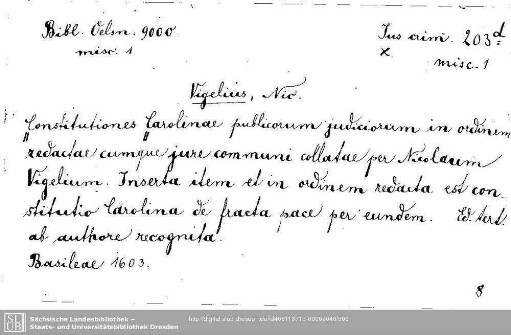 Bibl. Oelsn. 9000
misc. 1
Jus crim. 203d
x
misc. 1
Vigelius, Nic.
Constitutiones Carolinae publicorum judiciorum in ordinem
redactae cumque jure communi collatae per Nicolaum
Vigelium. Inserta item et in ordinem redacta est con-
stitutio Carolina de fracta pace per eundem. Ed. tert.
ab authore recognita.
Basileae 1603.
8
Sächsische Landesbibliothek –
Staats- und Universitätsbibliothek Dresden